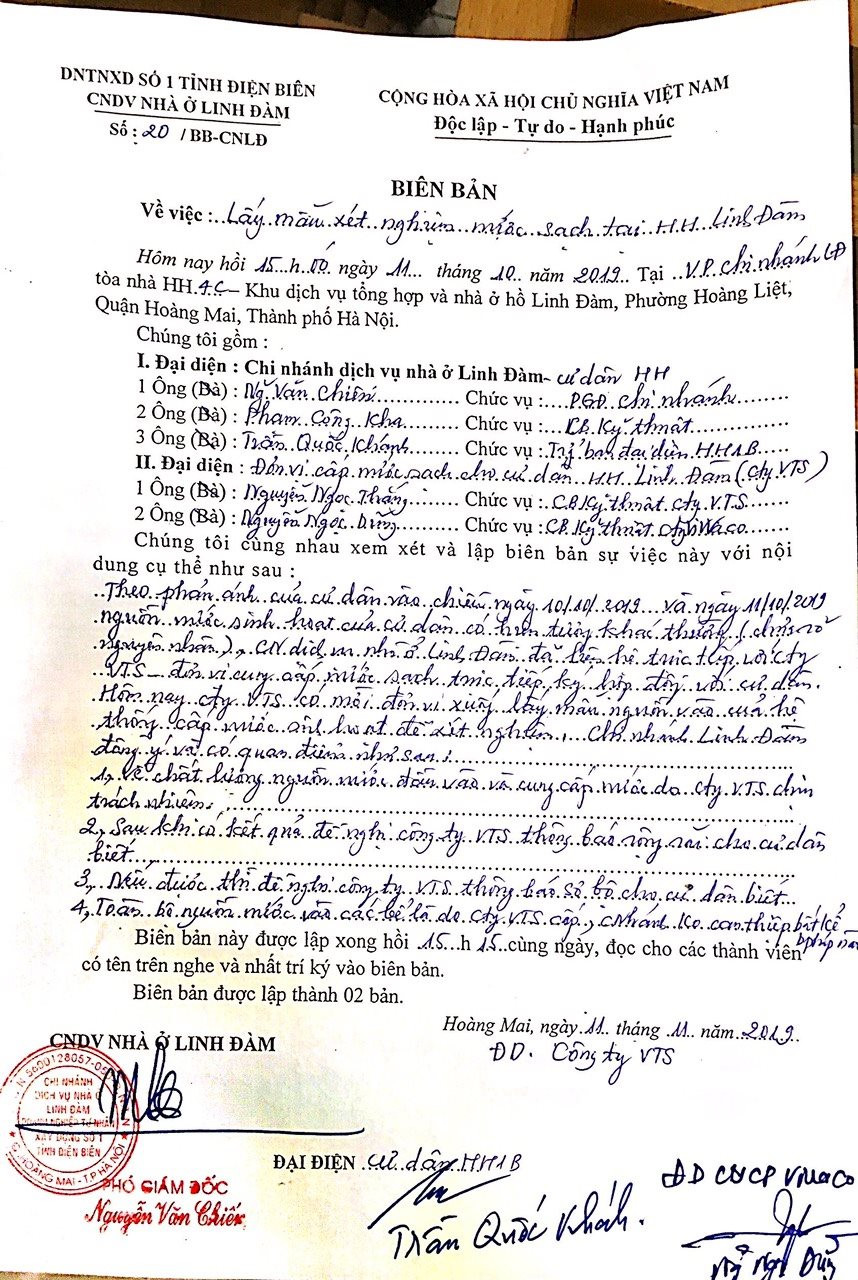 DNTNXD SỐ 1 TỈNH ĐIỆN BIÊN
CNDV NHÀ Ở LINH ĐÀM
Số : 20 / BB-CNLĐ
CỘNG HÒA XÃ HỘI CHỦ NGHĨA VIỆT NAM
Độc lập - Tự do - Hạnh phúc
BIÊN BẢN
Về việc : Lấy mẫu xét nghiệm nước sạch tại HH Linh Đàm
Hôm nay hồi 15 h 00 ngày 11 tháng 10 năm 2019 Tại V.P chi nhánh LĐ
tòa nhà HH 4C – Khu dịch vụ tổng hợp và nhà ở hồ Linh Đàm, Phường Hoàng Liệt,
Quận Hoàng Mai, Thành phố Hà Nội.
Chúng tôi gồm :
I. Đại diện : Chi nhánh dịch vụ nhà ở Linh Đàm - cư dân HH
1 Ông (Bà) : Ng. Văn Chiến Chức vụ : PGĐ chi nhánh
2 Ông (Bà) : Phạm Công Kha Chức vụ : CB Kỹ thuật
3 Ông (Bà) : Trần Quốc Khánh Chức vụ : Trg ban đại diện HH1B
II. Đại diện : Đơn vị cấp nước sạch cho cư dân HH Linh Đàm (cty VTS)
1 Ông (Bà) : Nguyễn Ngọc Thắng Chức vụ : CB Kỹ thuật cty VTS
2 Ông (Bà) : Nguyễn Ngọc Dũng Chức vụ : CB Kỹ thuật
Chúng tôi cùng nhau xem xét và lập biên bản sự việc này với nội
dung cụ thể như sau :
Theo phản ánh của cư dân vào chiều ngày 10/10/2019 và ngày 11/10/2019
nguồn nước sinh hoạt của cư dân có hiện tượng khác thường (chưa rõ
nguyên nhân), CN dịch vụ nhà ở Linh Đàm đã liên hệ trực tiếp với cty
VTS – đơn vị cung cấp nước sạch trực tiếp ký hợp đồng với cư dân.
Hôm nay cty VTS có mời đơn vị xuống lấy mẫu nguồn vào của hệ
thống cấp nước sinh hoạt để xét nghiệm, Chi nhánh Linh Đàm
đồng ý và có quan điểm như sau :
1, Về chất lượng nguồn nước đầu vào và cung cấp nước do cty VTS chịu
trách nhiệm.
2, Sau khi có kết quả đề nghị công ty VTS thông báo rộng rãi cho cư dân
biết
3, Nếu được thì đề nghị công ty VTS thông báo sơ bộ cho cư dân biết
4, Toàn bộ nguồn nước vào các bể là do cty VTS cấp, CNhánh ko can thiệp bất kể
Biên bản này được lập xong hồi 15 h 15 cùng ngày, đọc cho các thành viên
có tên trên nghe và nhất trí ký vào biên bản.
Biên bản được lập thành 02 bản.
Hoàng Mai, ngày 11 tháng 11 năm 2019
CNDV NHÀ Ở LINH ĐÀM
ĐD. Công ty VTS
CHI NHÁNH
DỊCH VỤ NHÀ Ở
LINH ĐÀM
DOANH NGHIỆP TƯ NHÂN
XÂY DỰNG SỐ 1
TỈNH ĐIỆN BIÊN
Q. HOÀNG MAI - T.P HÀ NỘI
PHÓ GIÁM ĐỐC
Nguyễn Văn Chiến
ĐẠI ĐIỆN cư dân HH1B
Trần Quốc Khánh.